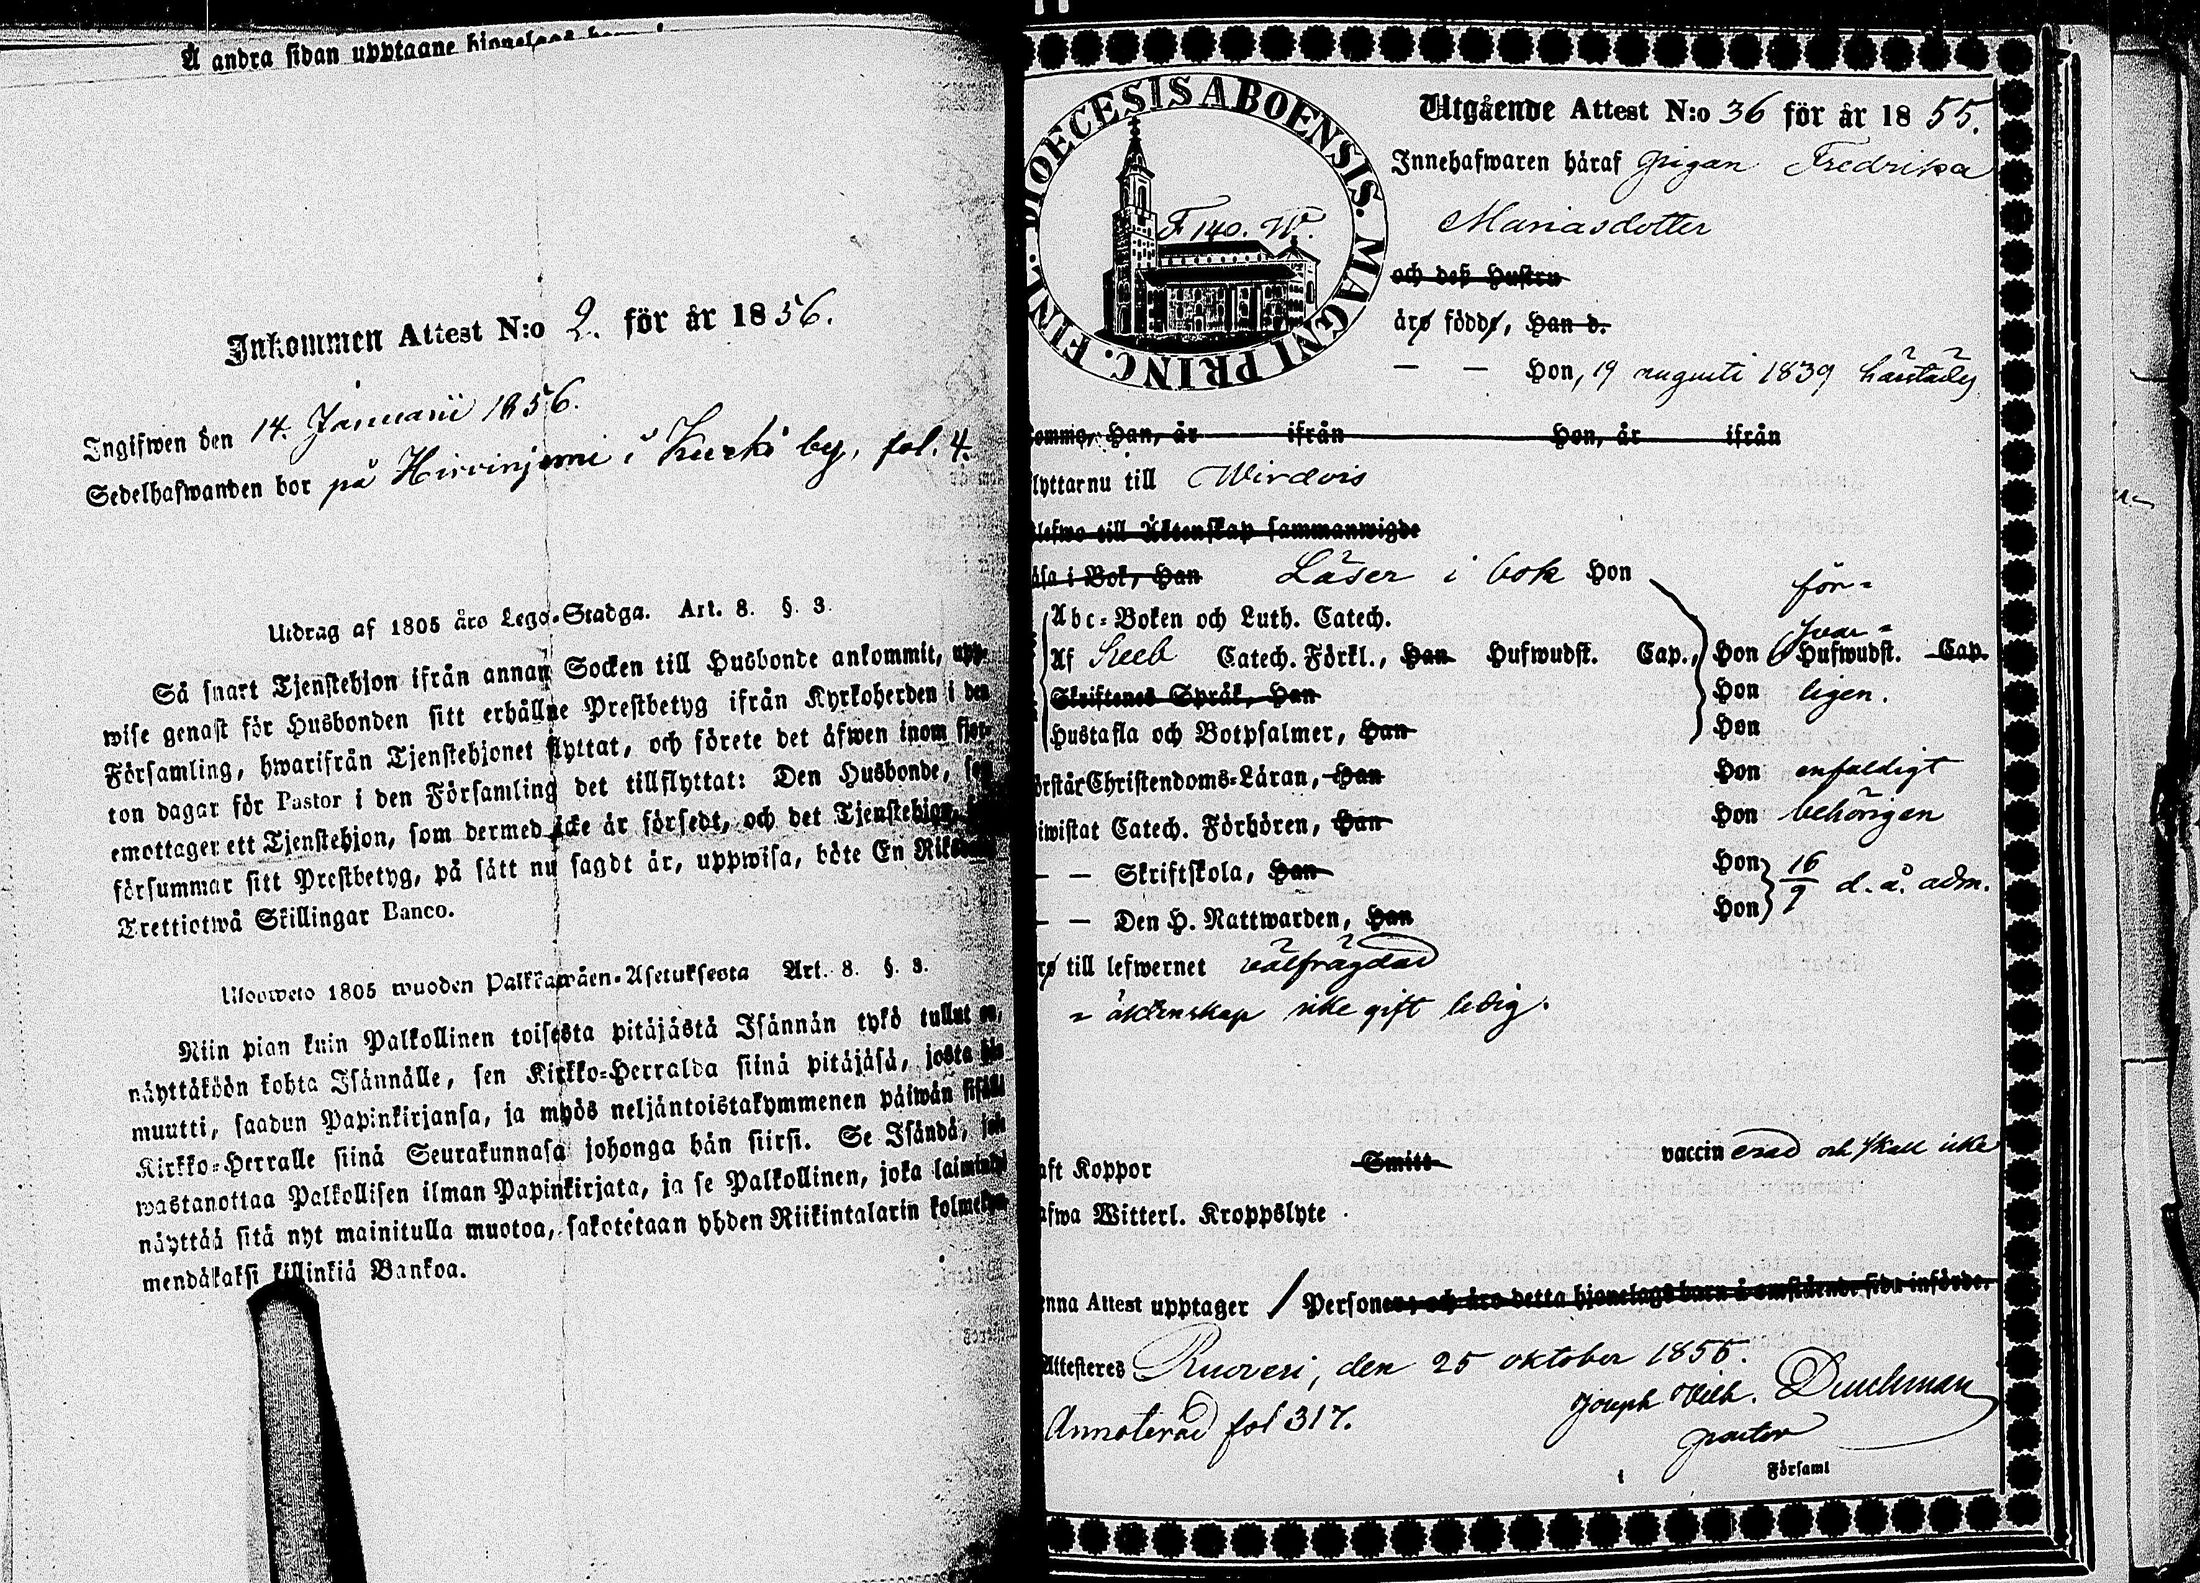 Å andra sidan upptagne hjonelags barn
Inkommen Attest N:o 2. för år 1856.
Ingifwen den 14. Januarii 1856.
Sedelhafwanden bor på Hirvinjemi i Kurki by, fol. 4.
Utdrag af 1805 års Lego-Stadga. Art. 8. §. 3.
Så snart Tjenstehjon ifrån annan Socken till Husbonde ankommit, upp-
wise genast för Husbonden sitt erhållne Prestbetyg ifrån Kyrkoherden i den
Församling, hwarifrån Tjenstehjonet flyttat, och förete det äfwen inom fjor-
ton dagar för Pastor i den Församling det tillflyttat: Den Husbonde, som
emottager ett Tjenstehjon, som dermed icke är försedt, och det Tjenstehjon,
försummar sitt Prestbetyg, på sätt nu sagdt är, uppwisa, böte En Riksdal.
Trettiotwå Skillingar Banco.
Ulosweto 1805 wuoden Palkkawäen-Asetuksesta Art. 8. §. 3.
Niin pian kuin Palkollinen toisesta pitäjästä Isännän tykö tullut on,
näyttäköön kohta Isännälle, sen Kirkko-Herralda siinä pitäjäsä, josta hän
muutti, saadun Papinkirjansa, ja myös neljäntoistakymmenen päiwän sisällä
Kirkko-Herralle siinä Seurakunnasa johonga hän siirsi. Se Isändä, joka
wastanottaa Palkollisen ilman Papinkirjata, ja se Palkollinen, joka laiminlyö
näyttää sitä nyt mainitulla muotoa, sakotetaan yhden Riikintalarin kolmekym-
mendäkaksi killinkiä Bankoa.
DIOECESIS ABOENSIS. MAGNI PRINC. FINL.
F 140. W.
Utgående Attest N:o 36 för år 1855.
Innehafwaren häraf pigan Fredrika
Mariasdotter
och deß Hustru
äro födde, Han d.
— — Hon, 19 augusti 1839 härstädes
komme, Han, år ifrån Hon, år ifrån
flyttar nu till Wirdois
blefwo till Äktenskap sammanwigde
läsa i Bok, Han Läser i bok Hon
Abc-Boken och Luth. Catech. för-
Af Sveb Catech. Förkl., Han Hufwudst. Cap., Hon svar- Hufwudst. Cap.
Skriftenes Språk, Han Hon ligen.
Hustafla och Botpsalmer, Han Hon
förstår Christendoms-Läran, Han Hon enfaldigt
biwistat Catech. Förhören, Han Hon behörigen
— — Skriftskola, Han Hon 16/9 d. å. adm.
— — Den H. Nattwarden, Han Hon
äro till lefwernet välfrägdad
= äktenskap icke gift ledig.
haft Koppor Smitt vaccinerad och skall icke
hafwa Witterl. Kroppslyte
Denna Attest upptager 1 Personer; och äro detta hjonelags barn å omstående sida införde.
Attesteres Ruovesi, den 25 oktober 1855.
Joseph Vilh. Durchman
Annoterad fol 317.
pastor
i Församl